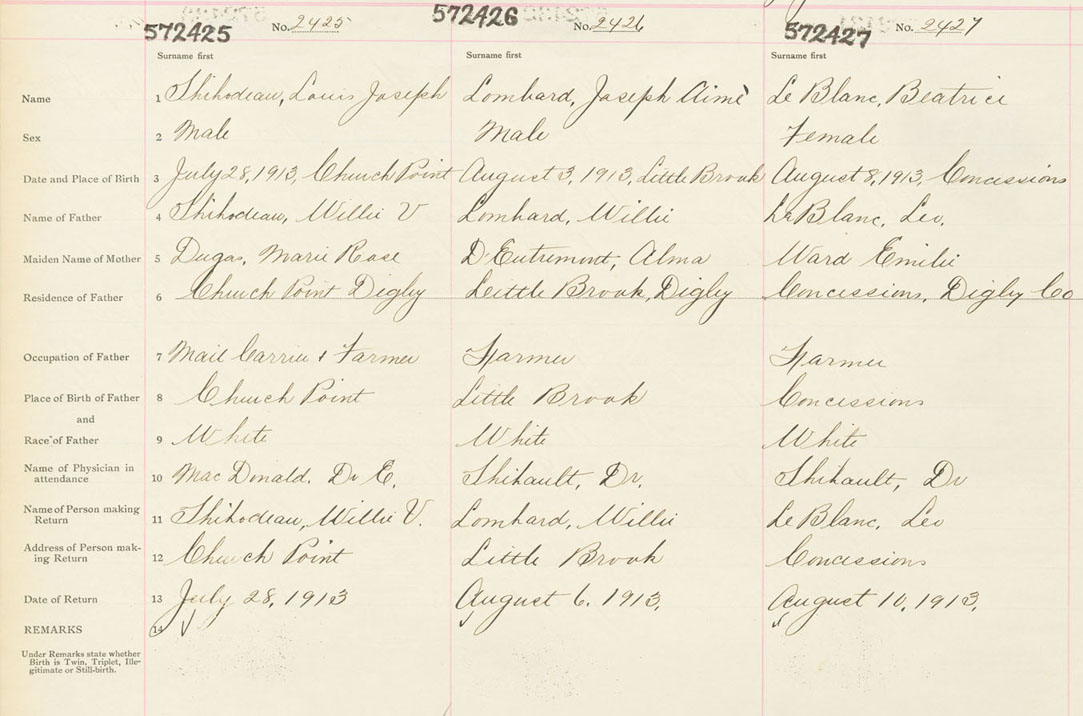 572425 No. 2425 572426 No. 2426 572427 No. 2427
Surname first Surname first Surname first
Name 1 Thibodeau, Louis Joseph Lombard, Joseph Aimè Le Blanc, Beatrice
Sex 2 Male Male Female
Date and Place of Birth 3 July 28, 1913, Church Point August 3, 1913, Little Brook August 8, 1913, Concessions
Name of Father 4 Thibodeau, Willie V Lombard, Willie Le Blanc, Leo.
Maiden Name of Mother 5 Dugas, Marie Rose D'Eutremont, Alma Ward Emilie
Residence of Father 6 Church Point Digby Little Brook, Digby Concessions, Digby Co
Occupation of Father 7 Mail Carrier & Farmer Farmer Farmer
Place of Birth of Father 8 Church Point Little Brook Concessions
and
Race of Father 9 White White White
Name of Physician in
attendance 10 Mac Donald. Dr E. Thibault, Dr. Thibault, Dr
Name of Person making
Return 11 Thibodeau, Willie V. Lombard, Willie Le Blanc, Leo
Address of Person mak-
ing Return 12 Church Point Little Brook Concessions
Date of Return 13 July 28, 1913 August 6, 1913, August 10, 1913,
REMARKS 14
Under Remarks state whether
Birth is Twin, Triplet, Ille-
gitimate or Still-birth.